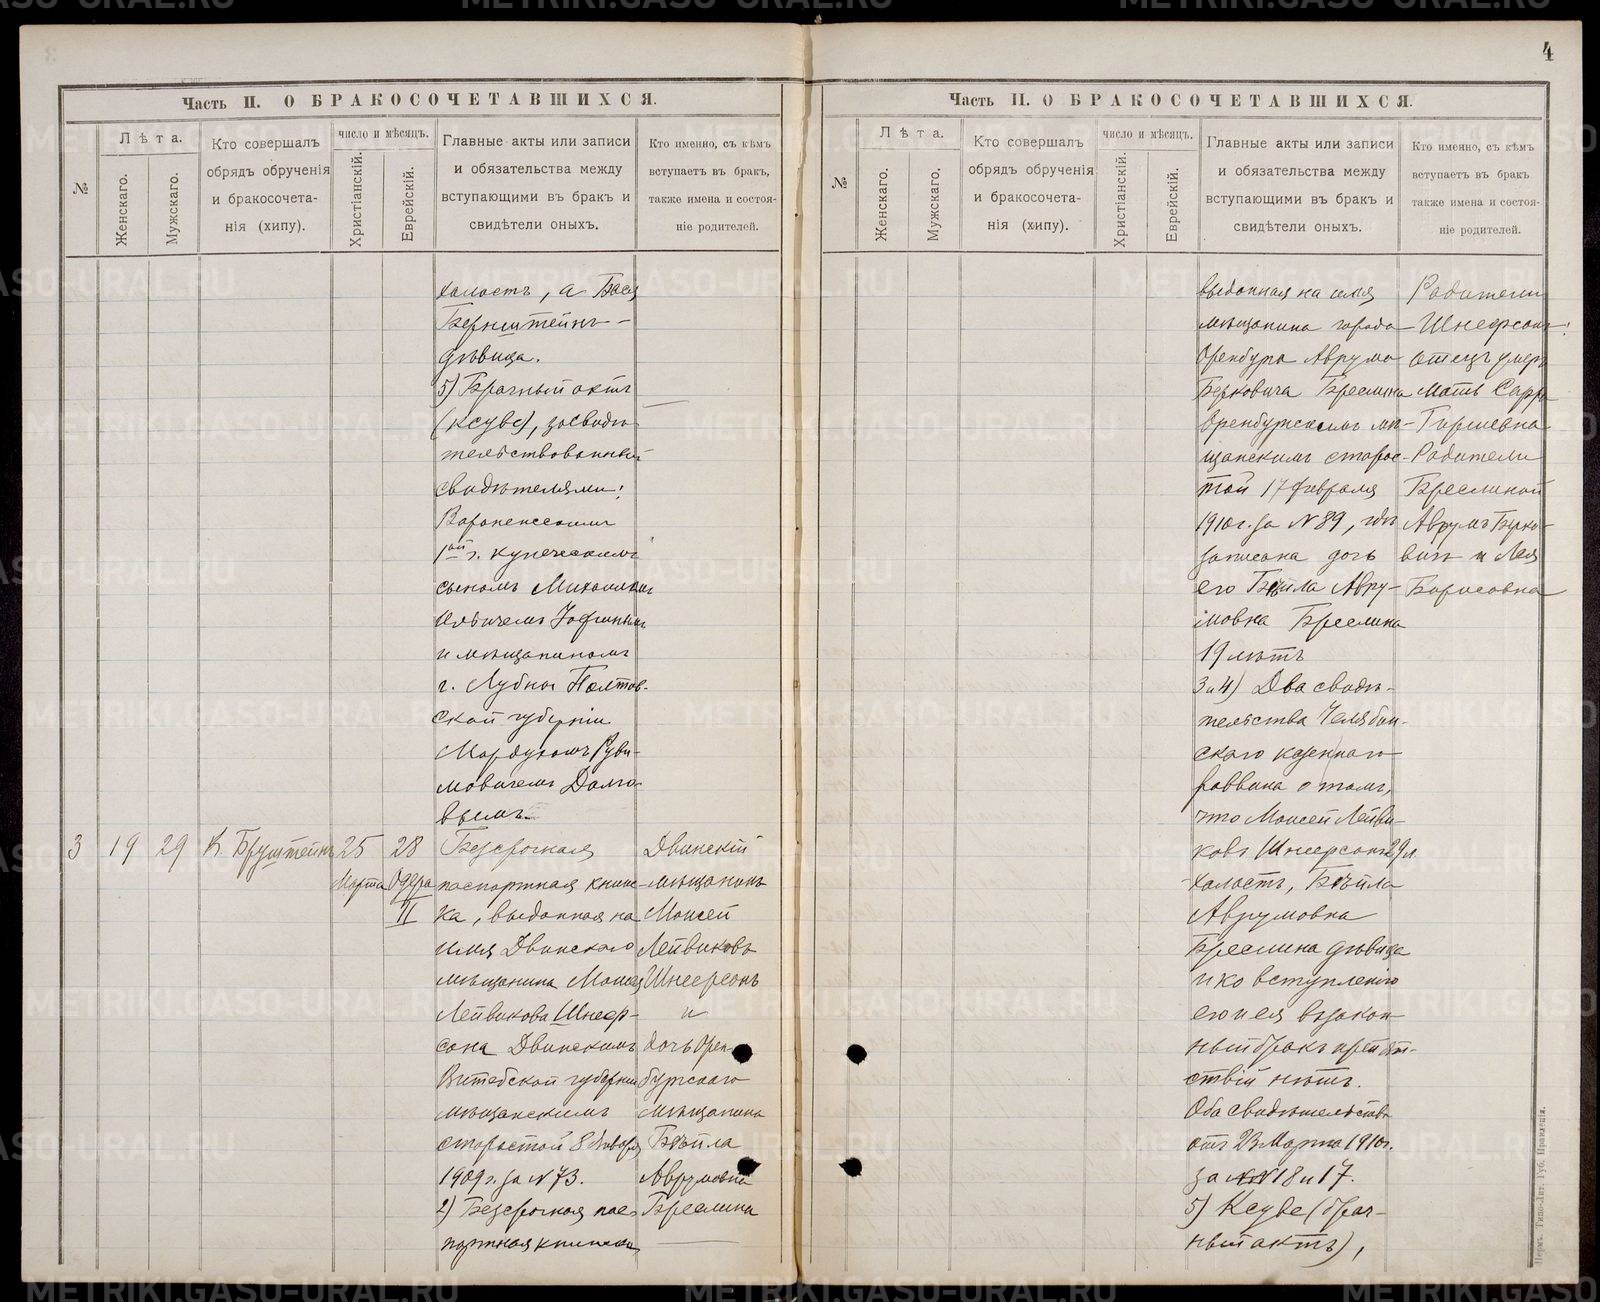 4
Часть II. О БРАКОСОЧЕТАВШИХСЯ.
№
Лѣта.
Женскаго.
Мужскаго.
Кто совершалъ
обрядъ обрученія
и бракосочета-
нія (хипу).
число и мѣсяцъ.
Христіанскій.
Еврейскій.
Главные акты или записи
и обязательства между
вступающими въ бракъ и
свидѣтели оныхъ.
Кто именно, съ кѣмъ
вступаетъ въ бракъ,
также имена и состоя-
ніе родителей.
холостъ, а Бася
Бернштейнъ –
дѣвица.
5) Брачный актъ
(ксубе), засвидѣ-
тельствованный
свидѣтелями:
1ой г. купеческимъ
сыномъ Михаиломъ
и мѣщаниномъ
г. Лубны Полтав-
ской губерніи
Мордухомъ Руви-
мовичемъ Долго-
вымъ.
3
19
29
К. Бруштейнъ
25
Марта
28
Одера
II
Безсрочная
паспортная книж-
ка, выданная на
имя Двинскаго
мѣщанина Моисея
Лейвикова Шнеер-
сона Двинскимъ
Витебской губерніи
мѣщанскимъ
старостой 8 Января
1909 г. за №73.
2) Безсрочная пас-
портная книжка,
Двинскій
мѣщанинъ
Моисей
Лейвиковъ
Шнеерсонъ
и
дочь Орен-
бургскаго
мѣщанина
Бейла
Аврумовна
Бреслина
Часть II. О БРАКОСОЧЕТАВШИХСЯ.
№
Лѣта.
Женскаго.
Мужскаго.
Кто совершалъ
обрядъ обрученія
и бракосочета-
нія (хипу).
число и мѣсяцъ.
Христіанскій.
Еврейскій.
Главные акты или записи
и обязательства между
вступающими въ бракъ и
свидѣтели оныхъ.
Кто именно, съ кѣмъ
вступаетъ въ бракъ
также имена и состоя-
ніе родителей.
выданная на имя
мѣщанина города
Оренбурга Аврума
Берковича Бреслина
Оренбургскимъ мѣ-
щанскимъ старос-
той 17 февраля
1910 г. за №89, гдѣ
записана дочь
его Бейла Авру-
мовна Бреслина
19 лѣтъ
3 и 4) Два свидѣ-
тельства Челябин-
скаго казеннаго
раввина о томъ,
что Моисей Лейви-
ковъ Шнеерсонъ 29 л.
холостъ, Бейла
Аврумовна
Бреслина дѣвица
и ко вступленію
его и ея въ закон-
ный бракъ препят-
ствій нѣтъ.
Оба свидѣтельства
отъ 23 Марта 1910 г.
за №№ 18 и 17.
5) Ксубе (брач-
ный актъ),
Родители
Шнеерсона:
отецъ умеръ
мать Сарра
Гиршевна
Родители
Бреслиной
Аврумъ Берко-
вичъ и Лея
Борисовна
Пермь. Типо-Лит. Губ. Правленія.
METRIKI.GASO-URAL.RU